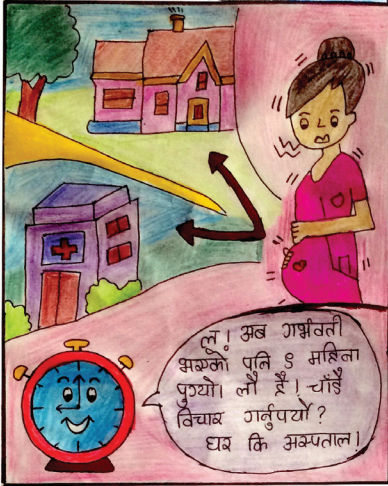 ल! अब गर्भवती
भएको पनि ९ महिना
पुग्यो। लौ है! चाँडै
विचार गर्नुपर्यो?
घर कि अस्पताल।